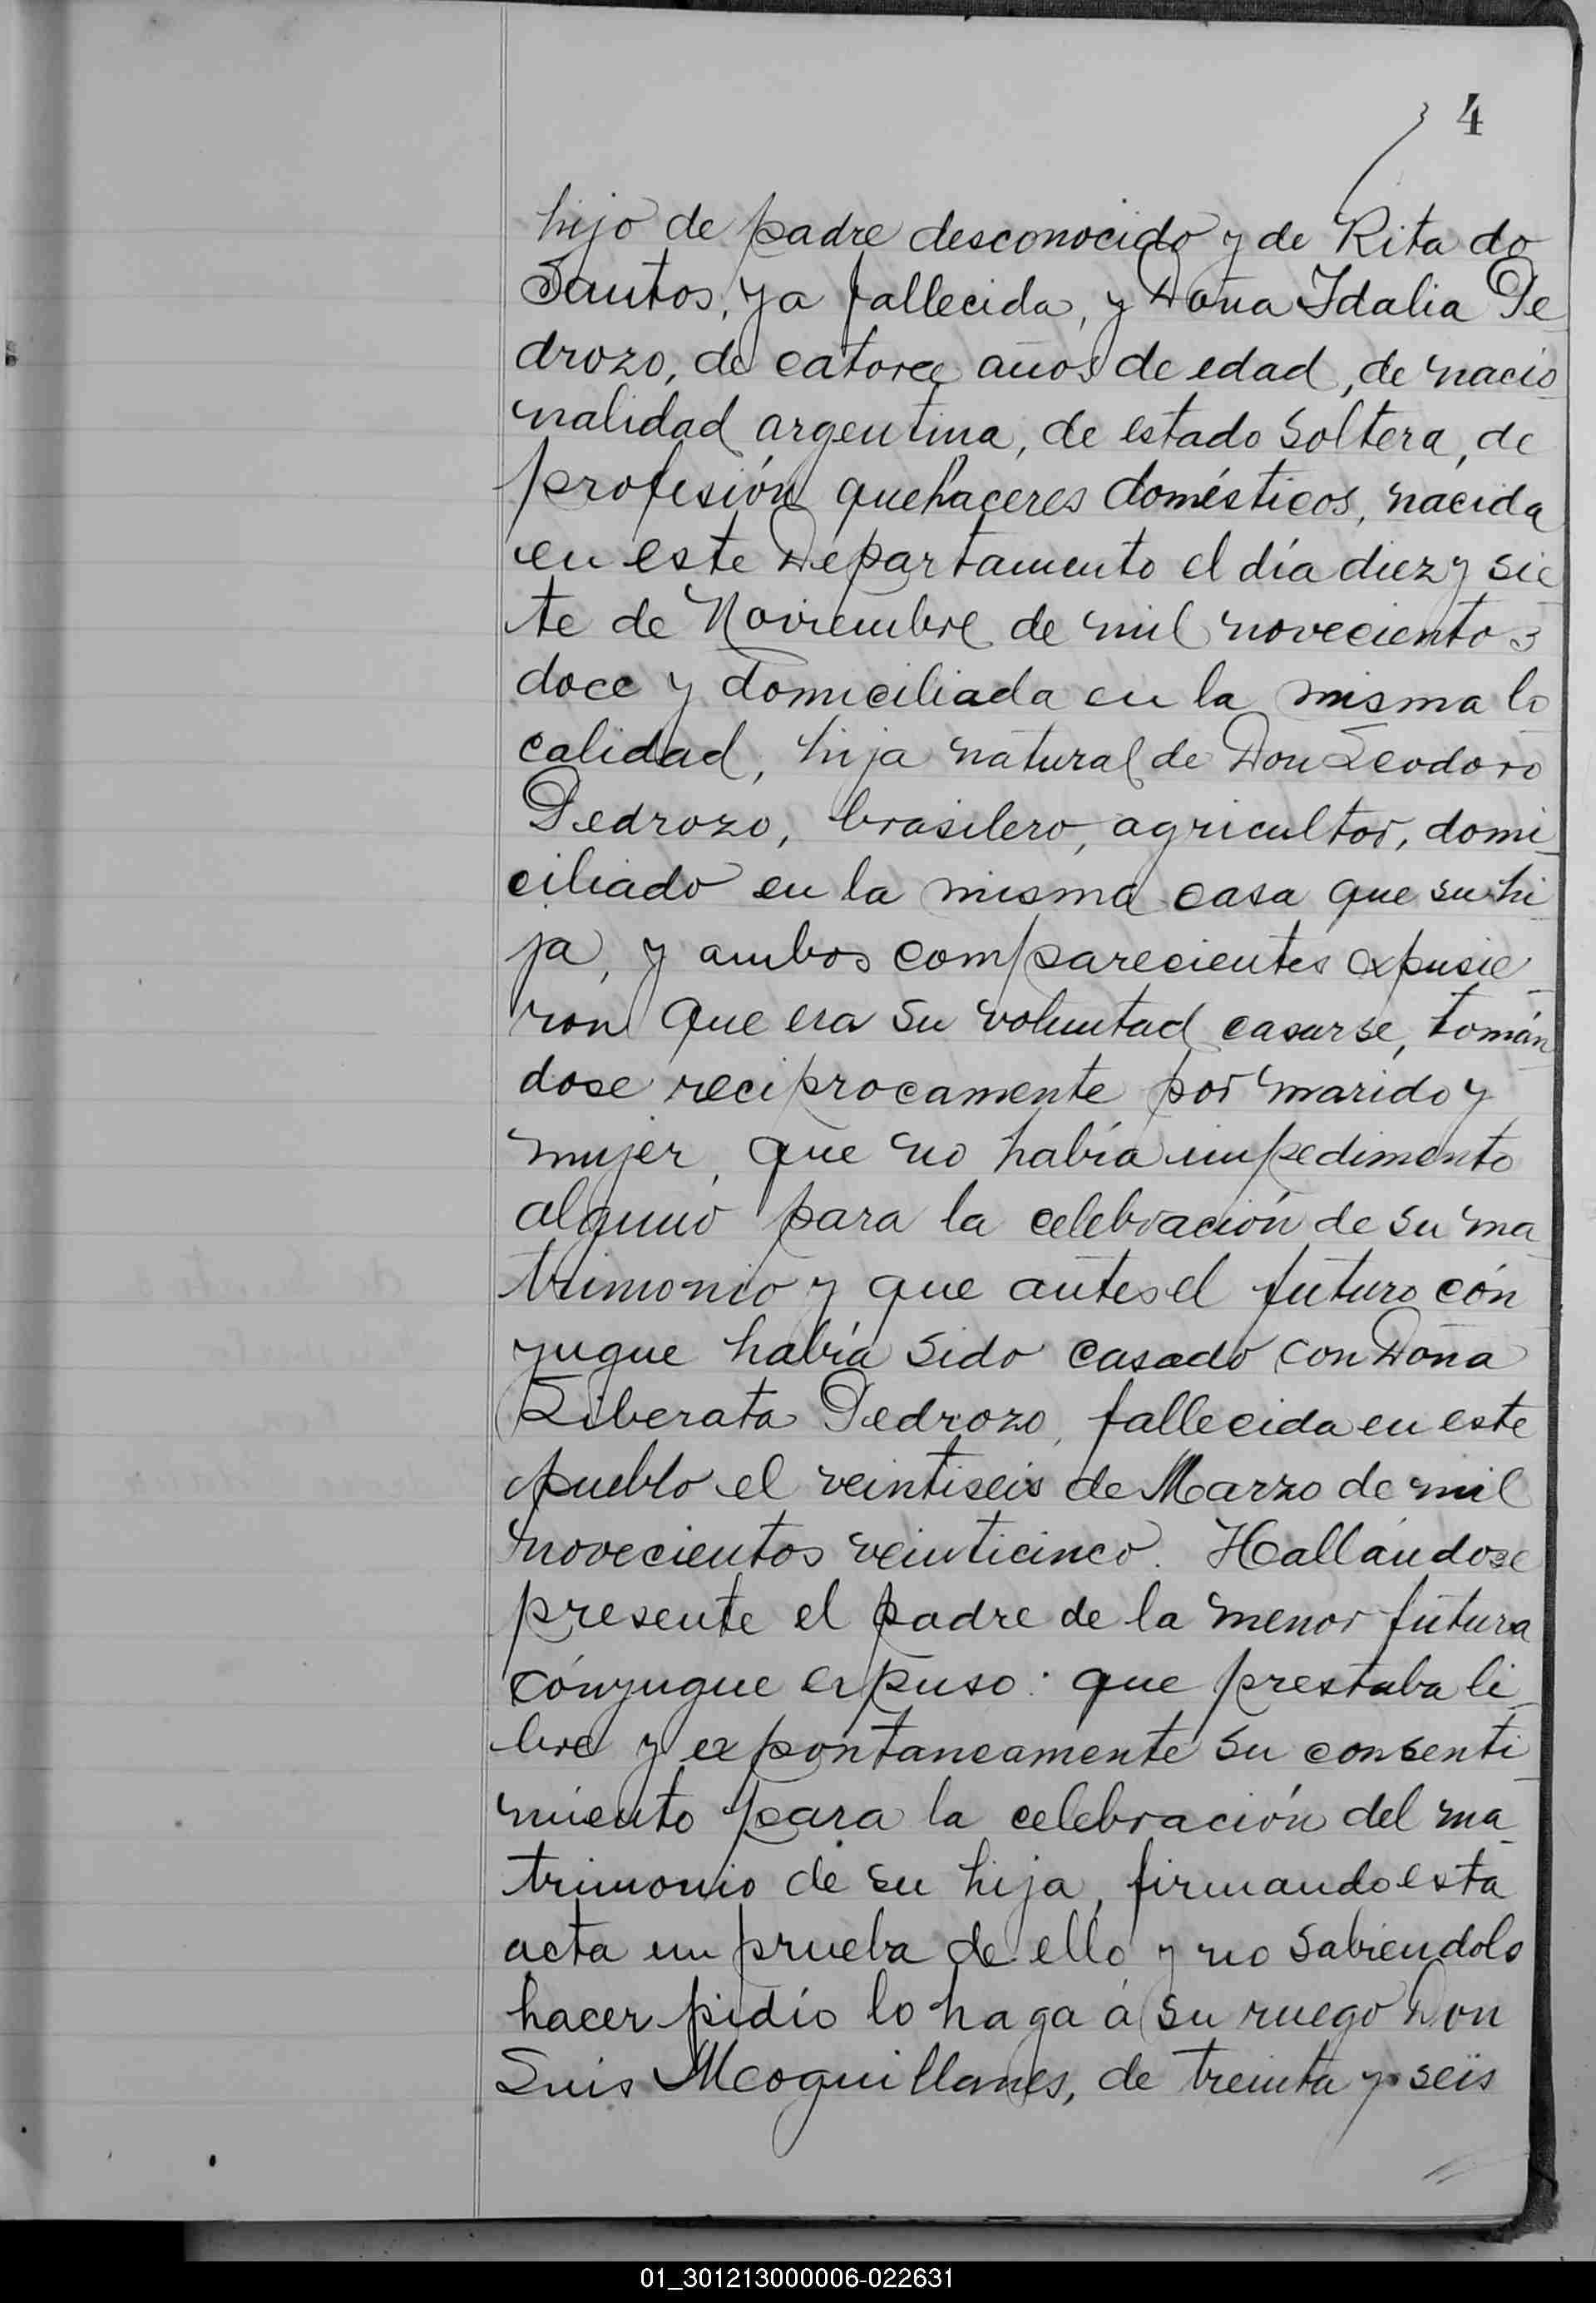 4
hijo de padre desconocido y de Rita do
Santos, ya fallecida, y Doña Idalia Pe
drozo, de catorce años de edad, de nacio
nalidad argentina, de estado soltera, de
profesión quehaceres domésticos, nacida
en este Departamento el día diez y sie
te de Noviembre de mil novecientos
doce y domiciliada en la misma lo
calidad, hija natural de Don Leodoro
Pedrozo, brasilero, agricultor, domi
ciliado en la misma casa que su hi
ja, y ambos comparecientes expusie
ron que era su voluntad casarse, tomán
dose reciprocamente por marido y
mujer, que no había impedimento
alguno para la celebración de su ma
trimonio y que antes el futuro cón
yugue había sido casado con Doña
Liberata Pedrozo, fallecida en este
pueblo el veintiseis de Marzo de mil
novecientos veinticinco. Hallándose
presente el padre de la menor futura
cónyugue expuso: que prestaba li
bre y expontaneamente su consenti
miento para la celebración del ma
trimonio de su hija, firmando esta
acta en prueba de ello y no sabiéndolo
hacer pidió lo haga á su ruego Don
Luis Mcoquillanes, de treinta y seis
01_301213000006-022631